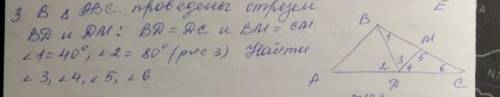 3. В △ ABC проведены отрезки
BD и DM: BD = DC и BM = CM.
∠1 = 40°, ∠2 = 80° (рис 3) Найти
∠3, ∠4, ∠5, ∠6
E
B
1
M
3
5
2
4
6
A
D
C